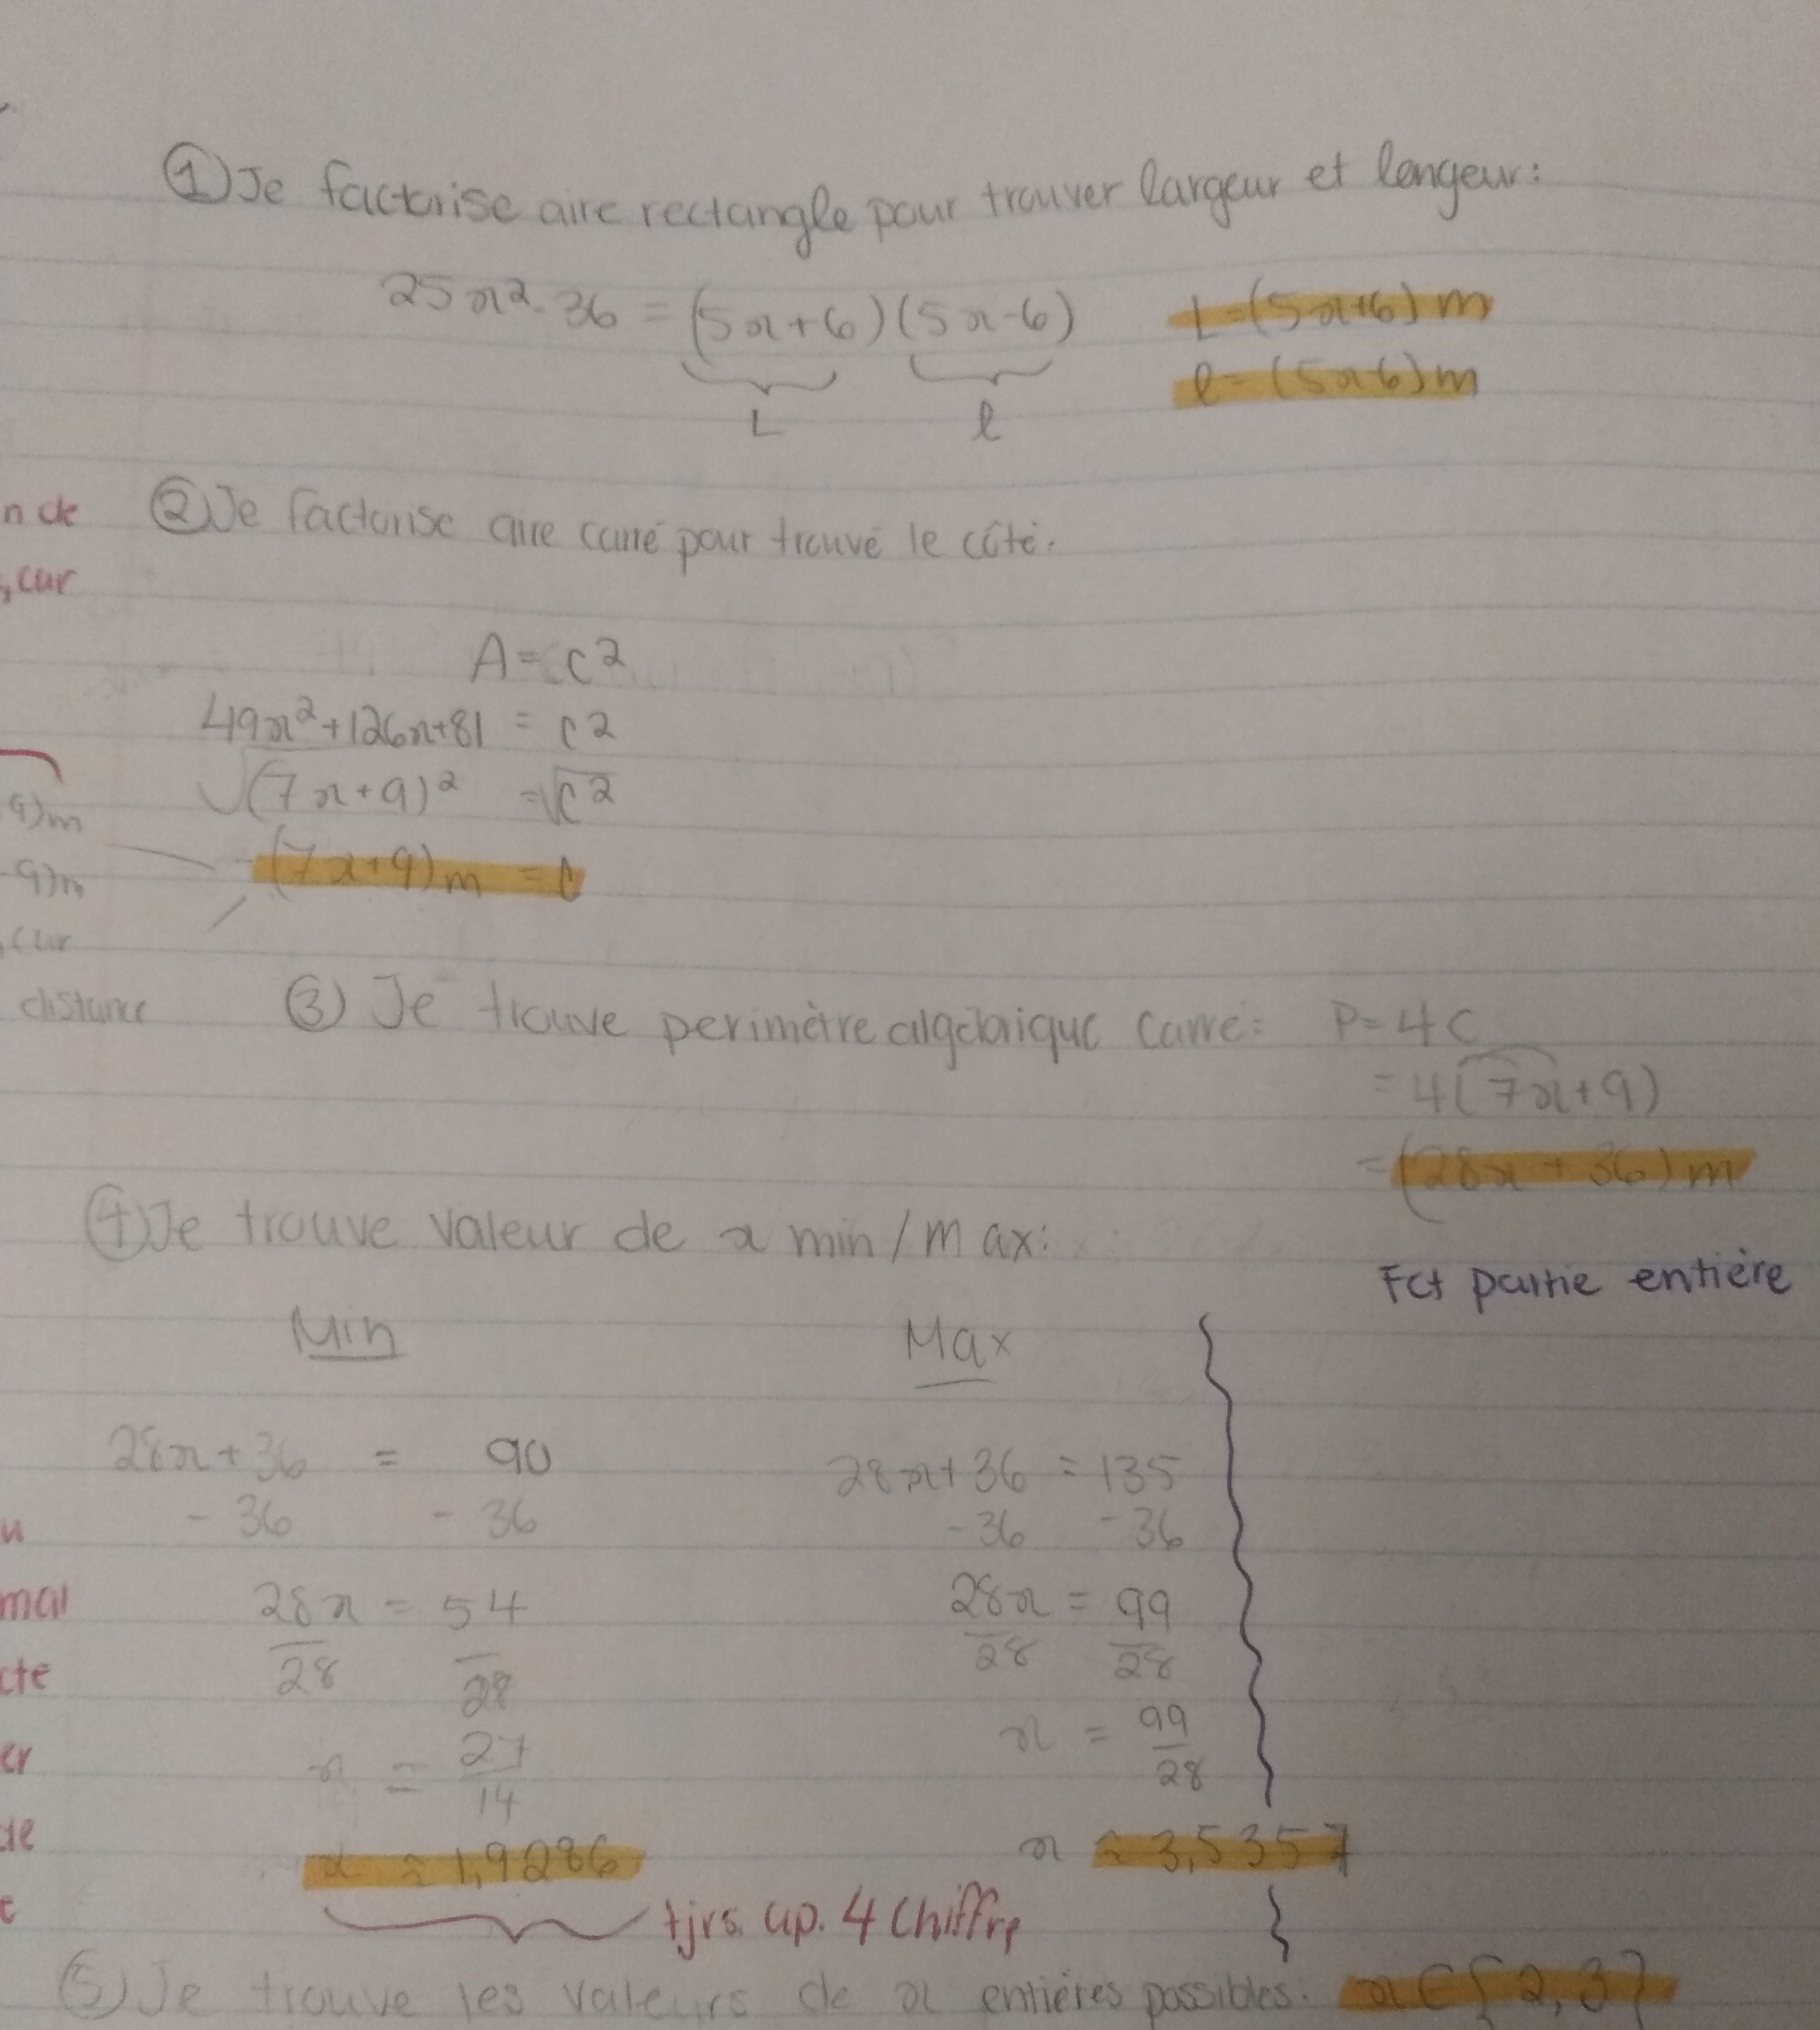 ① Je factorise aire rectangle pour trouver largeur et longeur:
25x² - 36 = (5x+6)(5x-6) L=(5x+6)m
L l l=(5x-6)m
n de ② Je factorise aire carré pour trouvé le côté.
, car
A = c²
49x²+126x+81 = c²
√(7x+9)² = √c²
9)m
(7x+9)m = c
9)m
, car
distance ③ Je trouve perimètre algébrique carré: P = 4c
= 4(7x+9)
= (28x + 36)m
④ Je trouve valeur de x min/max:
Fct partie entière
Min Max
28x+36 = 90 28x+36 = 135
u - 36 - 36 - 36 - 36
mal 28x = 54 28x = 99
cte 28 28 28 28
er x = 27/14 x = 99/28
de x ≈ 1,9286 x ≈ 3,5357
t tjrs. ap. 4 chiffre
⑤ Je trouve les valeurs de x entières possibles: x ∈ {2,3}